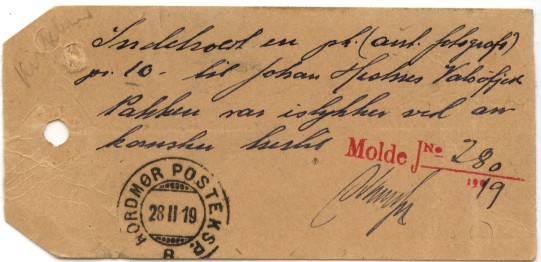 Indeholdt en pk. (ant. fotografi)
pr. 10.- til Johan Valsøfjord
Pakken var istykker ved an
komsten hertil
Molde JNo 280
19
NORDMØR POSTEKSP.
28 II 19
B